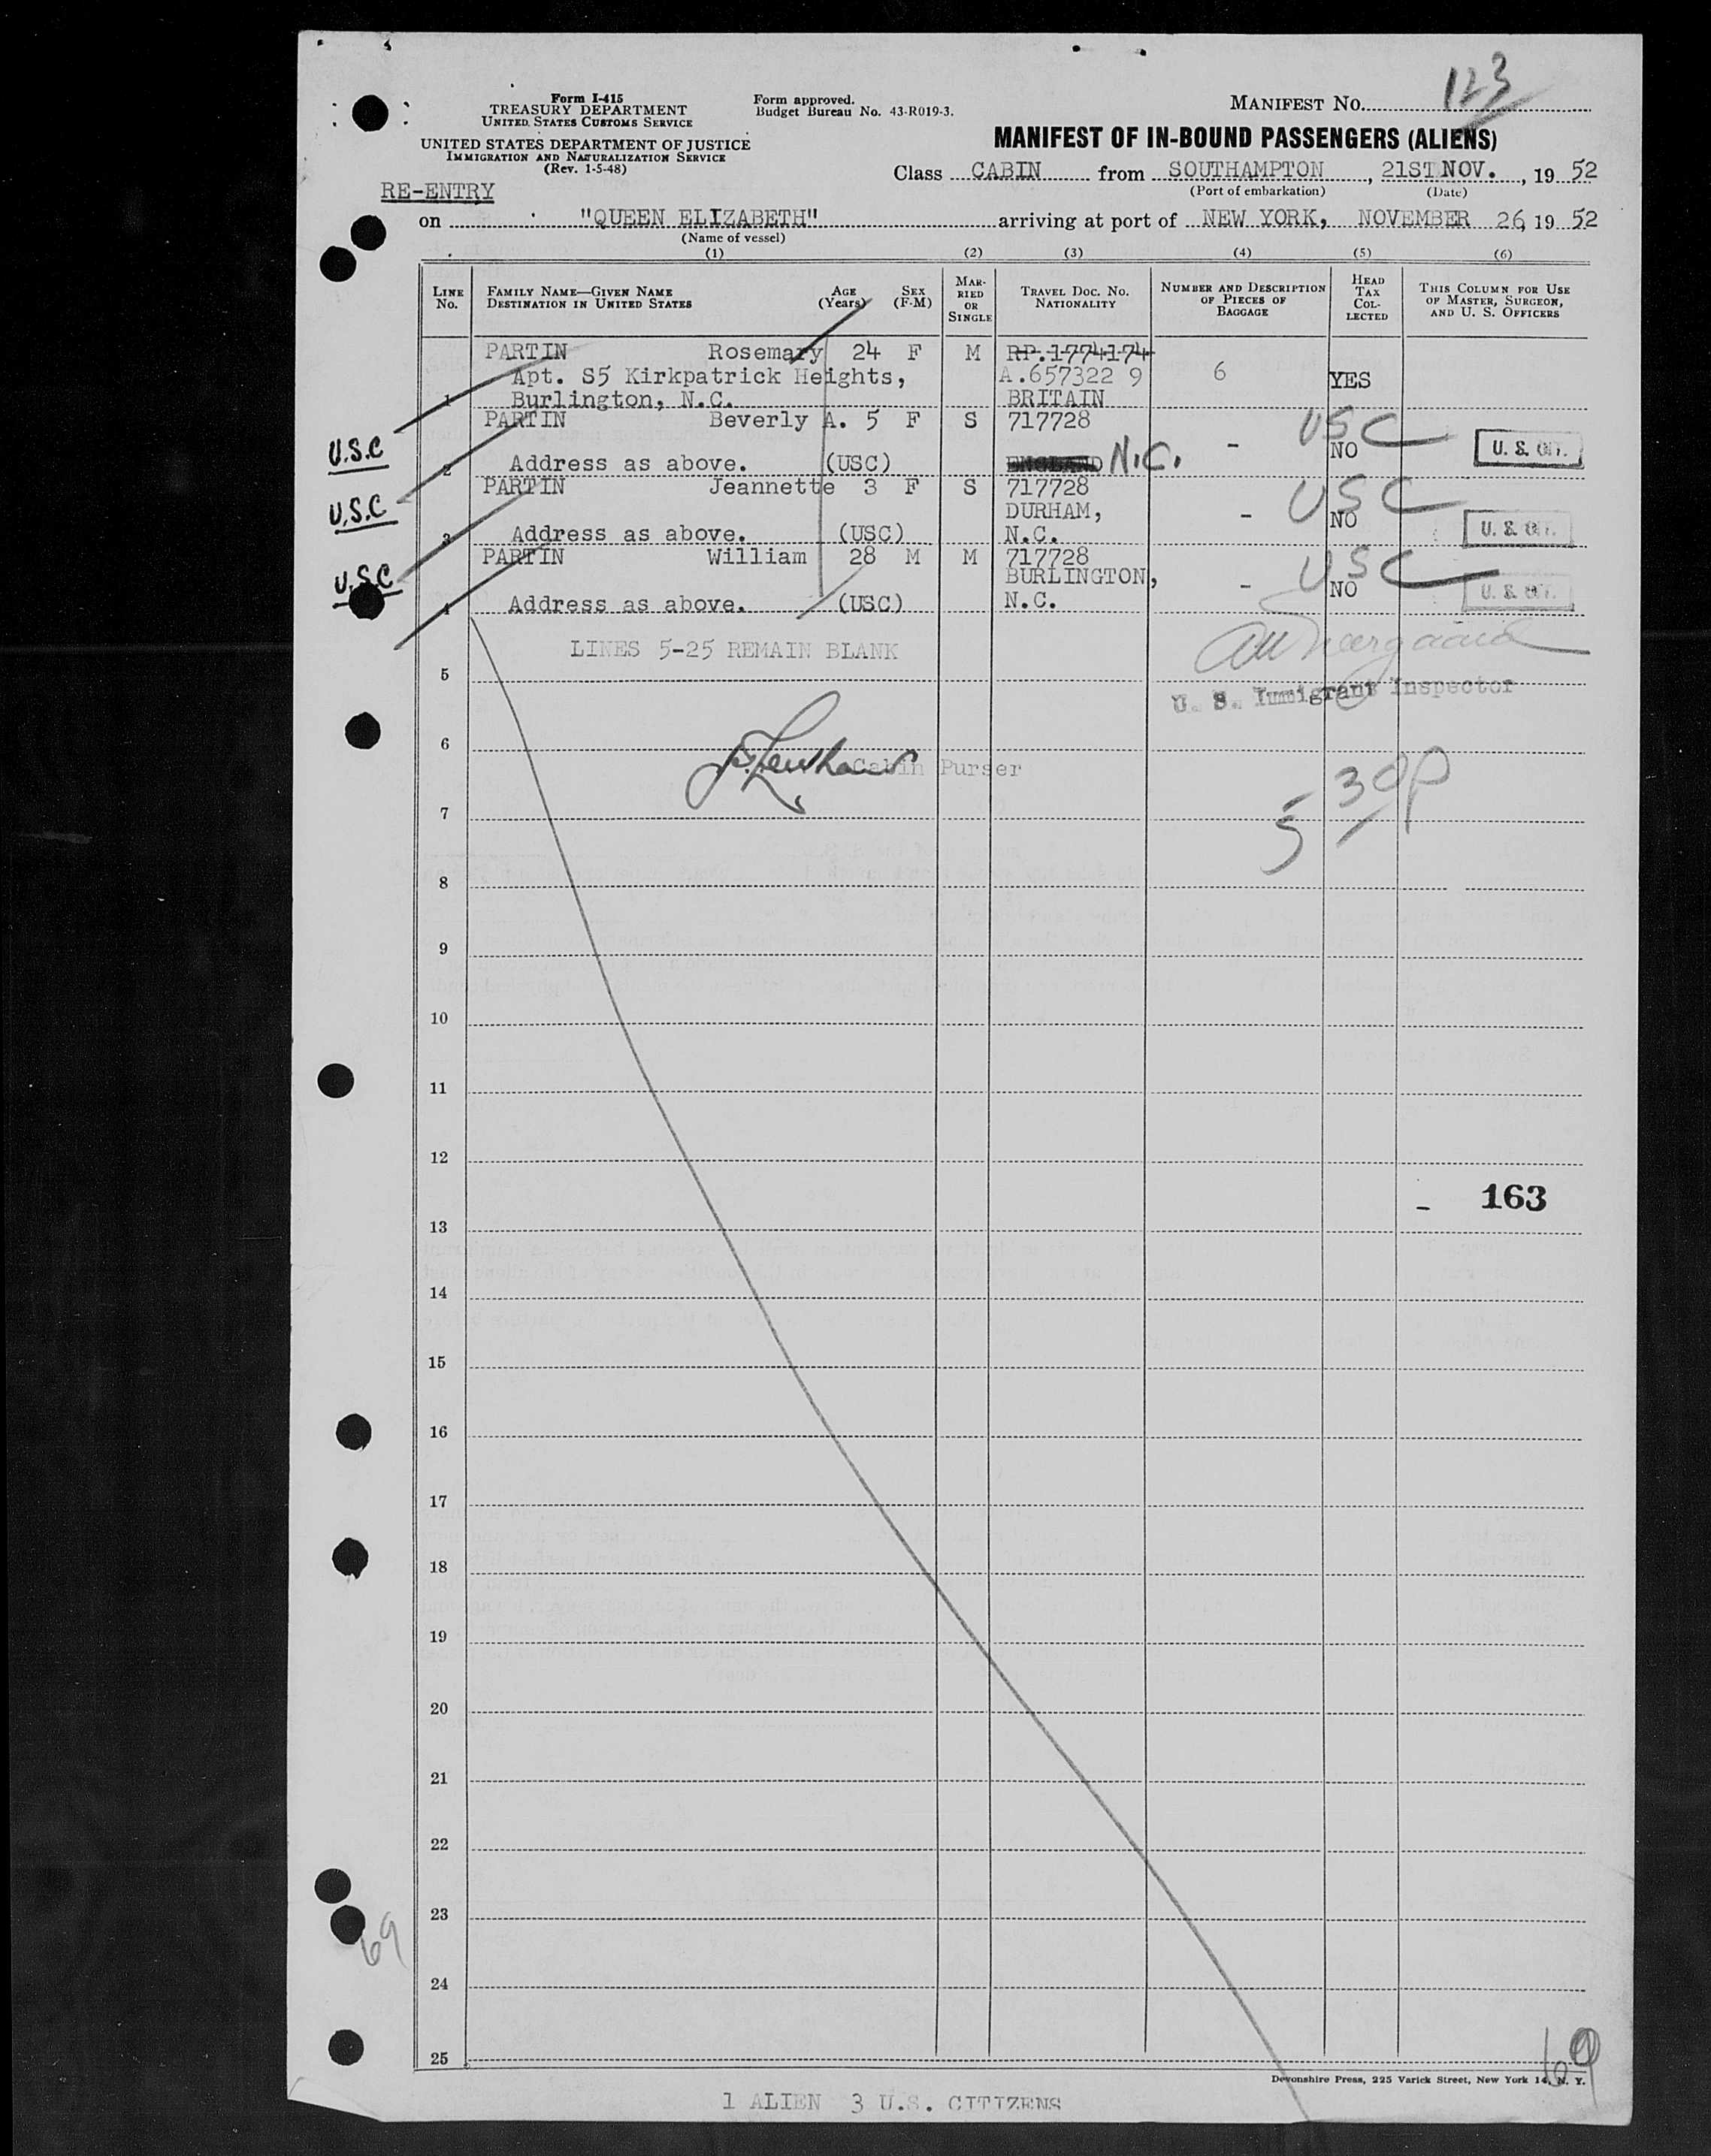 123
Form I-415
TREASURY DEPARTMENT
UNITED STATES CUSTOMS SERVICE
UNITED STATES DEPARTMENT OF JUSTICE
IMMIGRATION AND NATURALIZATION SERVICE
(Rev. 1-5-48)
Form approved.
Budget Bureau No. 43-R019-3.
MANIFEST No.
MANIFEST OF IN-BOUND PASSENGERS (ALIENS)
Class CABIN from SOUTHAMPTON, 21ST NOV., 19 52
(Port of embarkation) (Date)
RE-ENTRY
on "QUEEN ELIZABETH" arriving at port of NEW YORK, NOVEMBER 26, 19 52
(Name of vessel)
(1) (2) (3) (4) (5) (6)
LINE No.
FAMILY NAME—GIVEN NAME
DESTINATION IN UNITED STATES
AGE (Years)
SEX (F-M)
MARRIED OR SINGLE
TRAVEL DOC. NO.
NATIONALITY
NUMBER AND DESCRIPTION OF PIECES OF BAGGAGE
HEAD TAX COLLECTED
THIS COLUMN FOR USE OF MASTER, SURGEON, AND U. S. OFFICERS
PARTIN Rosemary 24 F M RP.1774174
Apt. S5 Kirkpatrick Heights, A.657322 9 6 YES
1 Burlington, N.C. BRITAIN
PARTIN Beverly A. 5 F S 717728 USC
U.S.C - NO U. S. CIT.
2 Address as above. (USC) ENGLAND N.C.
PARTIN Jeannette 3 F S 717728 USC
U.S.C DURHAM, - NO U. S. CIT.
3 Address as above. (USC) N.C.
PARTIN William 28 M M 717728 USC
U.S.C BURLINGTON, - NO U. S. CIT.
4 Address as above. (USC) N.C.
LINES 5-25 REMAIN BLANK
5
U. S. Immigrant Inspector
6
Cabin Purser
5 30 p
7
8
9
10
11
12
- 163
13
14
15
16
17
18
19
20
21
22
23
69
24
25
69
Devonshire Press, 225 Varick Street, New York 14, N. Y.
1 ALIEN 3 U.S. CITIZENS